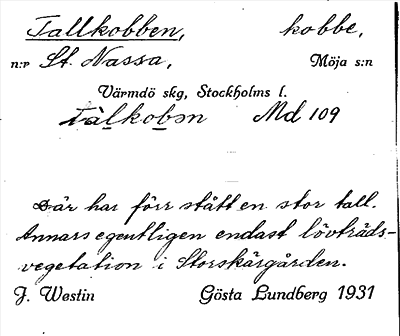 Tallkobben, kobbe,
n:r St. Nassa, Möja s:n
Värmdö skg, Stockholms l.
Tàlkobən Md 109
Där har förr stått en stor tall.
Annars egentligen endast lövträds-
vegetation i Storskärgården.
J. Westin Gösta Lundberg 1931